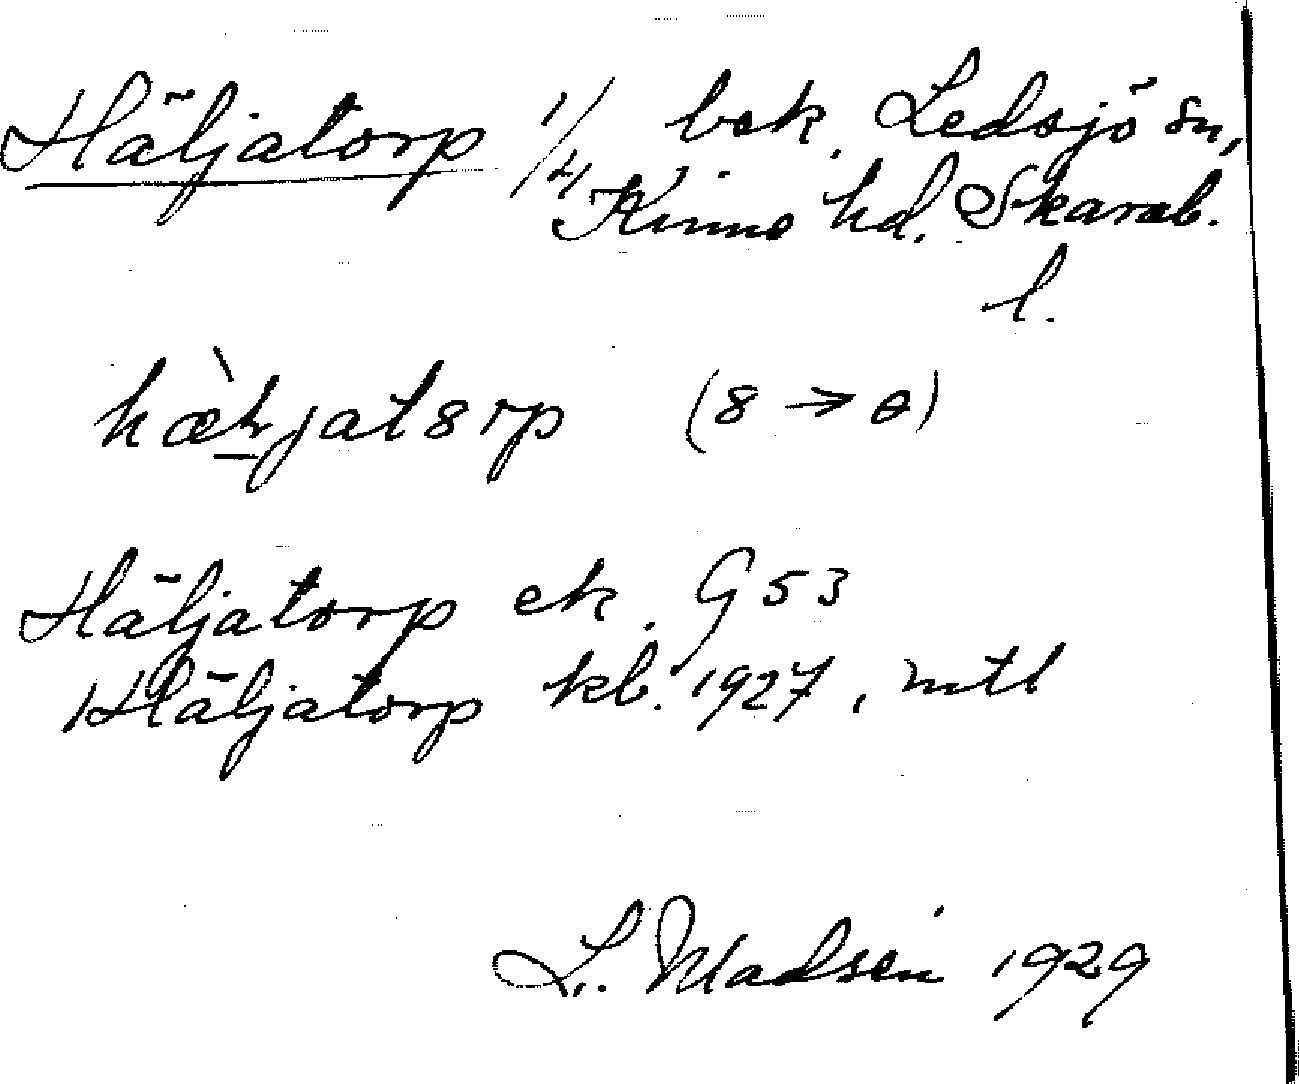 Häljatorp 1/4 bek. Ledsjö sn,
Kinne hd. Skarab.
l.
hæ̀ljat8rp (8 → ɵ)
Häljatorp ek. G 53
Häljatorp kb. 1927, mtl
L. Madsén 1929